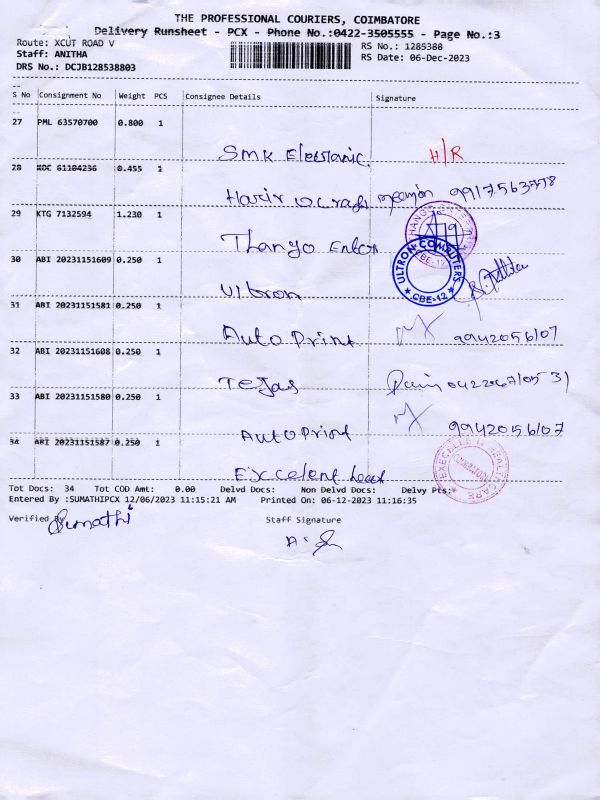 THE PROFESSIONAL COURIERS, COIMBATORE
Delivery Runsheet - PCX - Phone No.:0422-3505555 - Page No.:3
Route: XCUT ROAD V
RS No.: 1285388
Staff: ANITHA
RS Date: 06-Dec-2023
DRS No.: DCJB128538803
S No Consignment No Weight PCS Consignee Details Signature
27 PML 63570700 0.800 1
SMK Electronic. H/R
28 KOC 61104236 0.455 1
29 KTG 7132594 1.230 1
Thango Enter
30 ABI 20231151609 0.250 1
Ultron
ULTRON COMPUTERS
★ CBE-12 ★
31 ABI 20231151581 0.250 1
Auto Print 9942056107
32 ABI 20231151608 0.250 1
Tejas
33 ABI 20231151580 0.250 1
Auto Print 9942056107
34 ABI 20231151587 0.250 1
Excelent
Tot Docs: 34 Tot COD Amt: 0.00 Delvd Docs: Non Delvd Docs: Delvy Pts:
Entered By :SUMATHIPCX 12/06/2023 11:15:21 AM Printed On: 06-12-2023 11:16:35
Verified By
Sumathi
Staff Signature